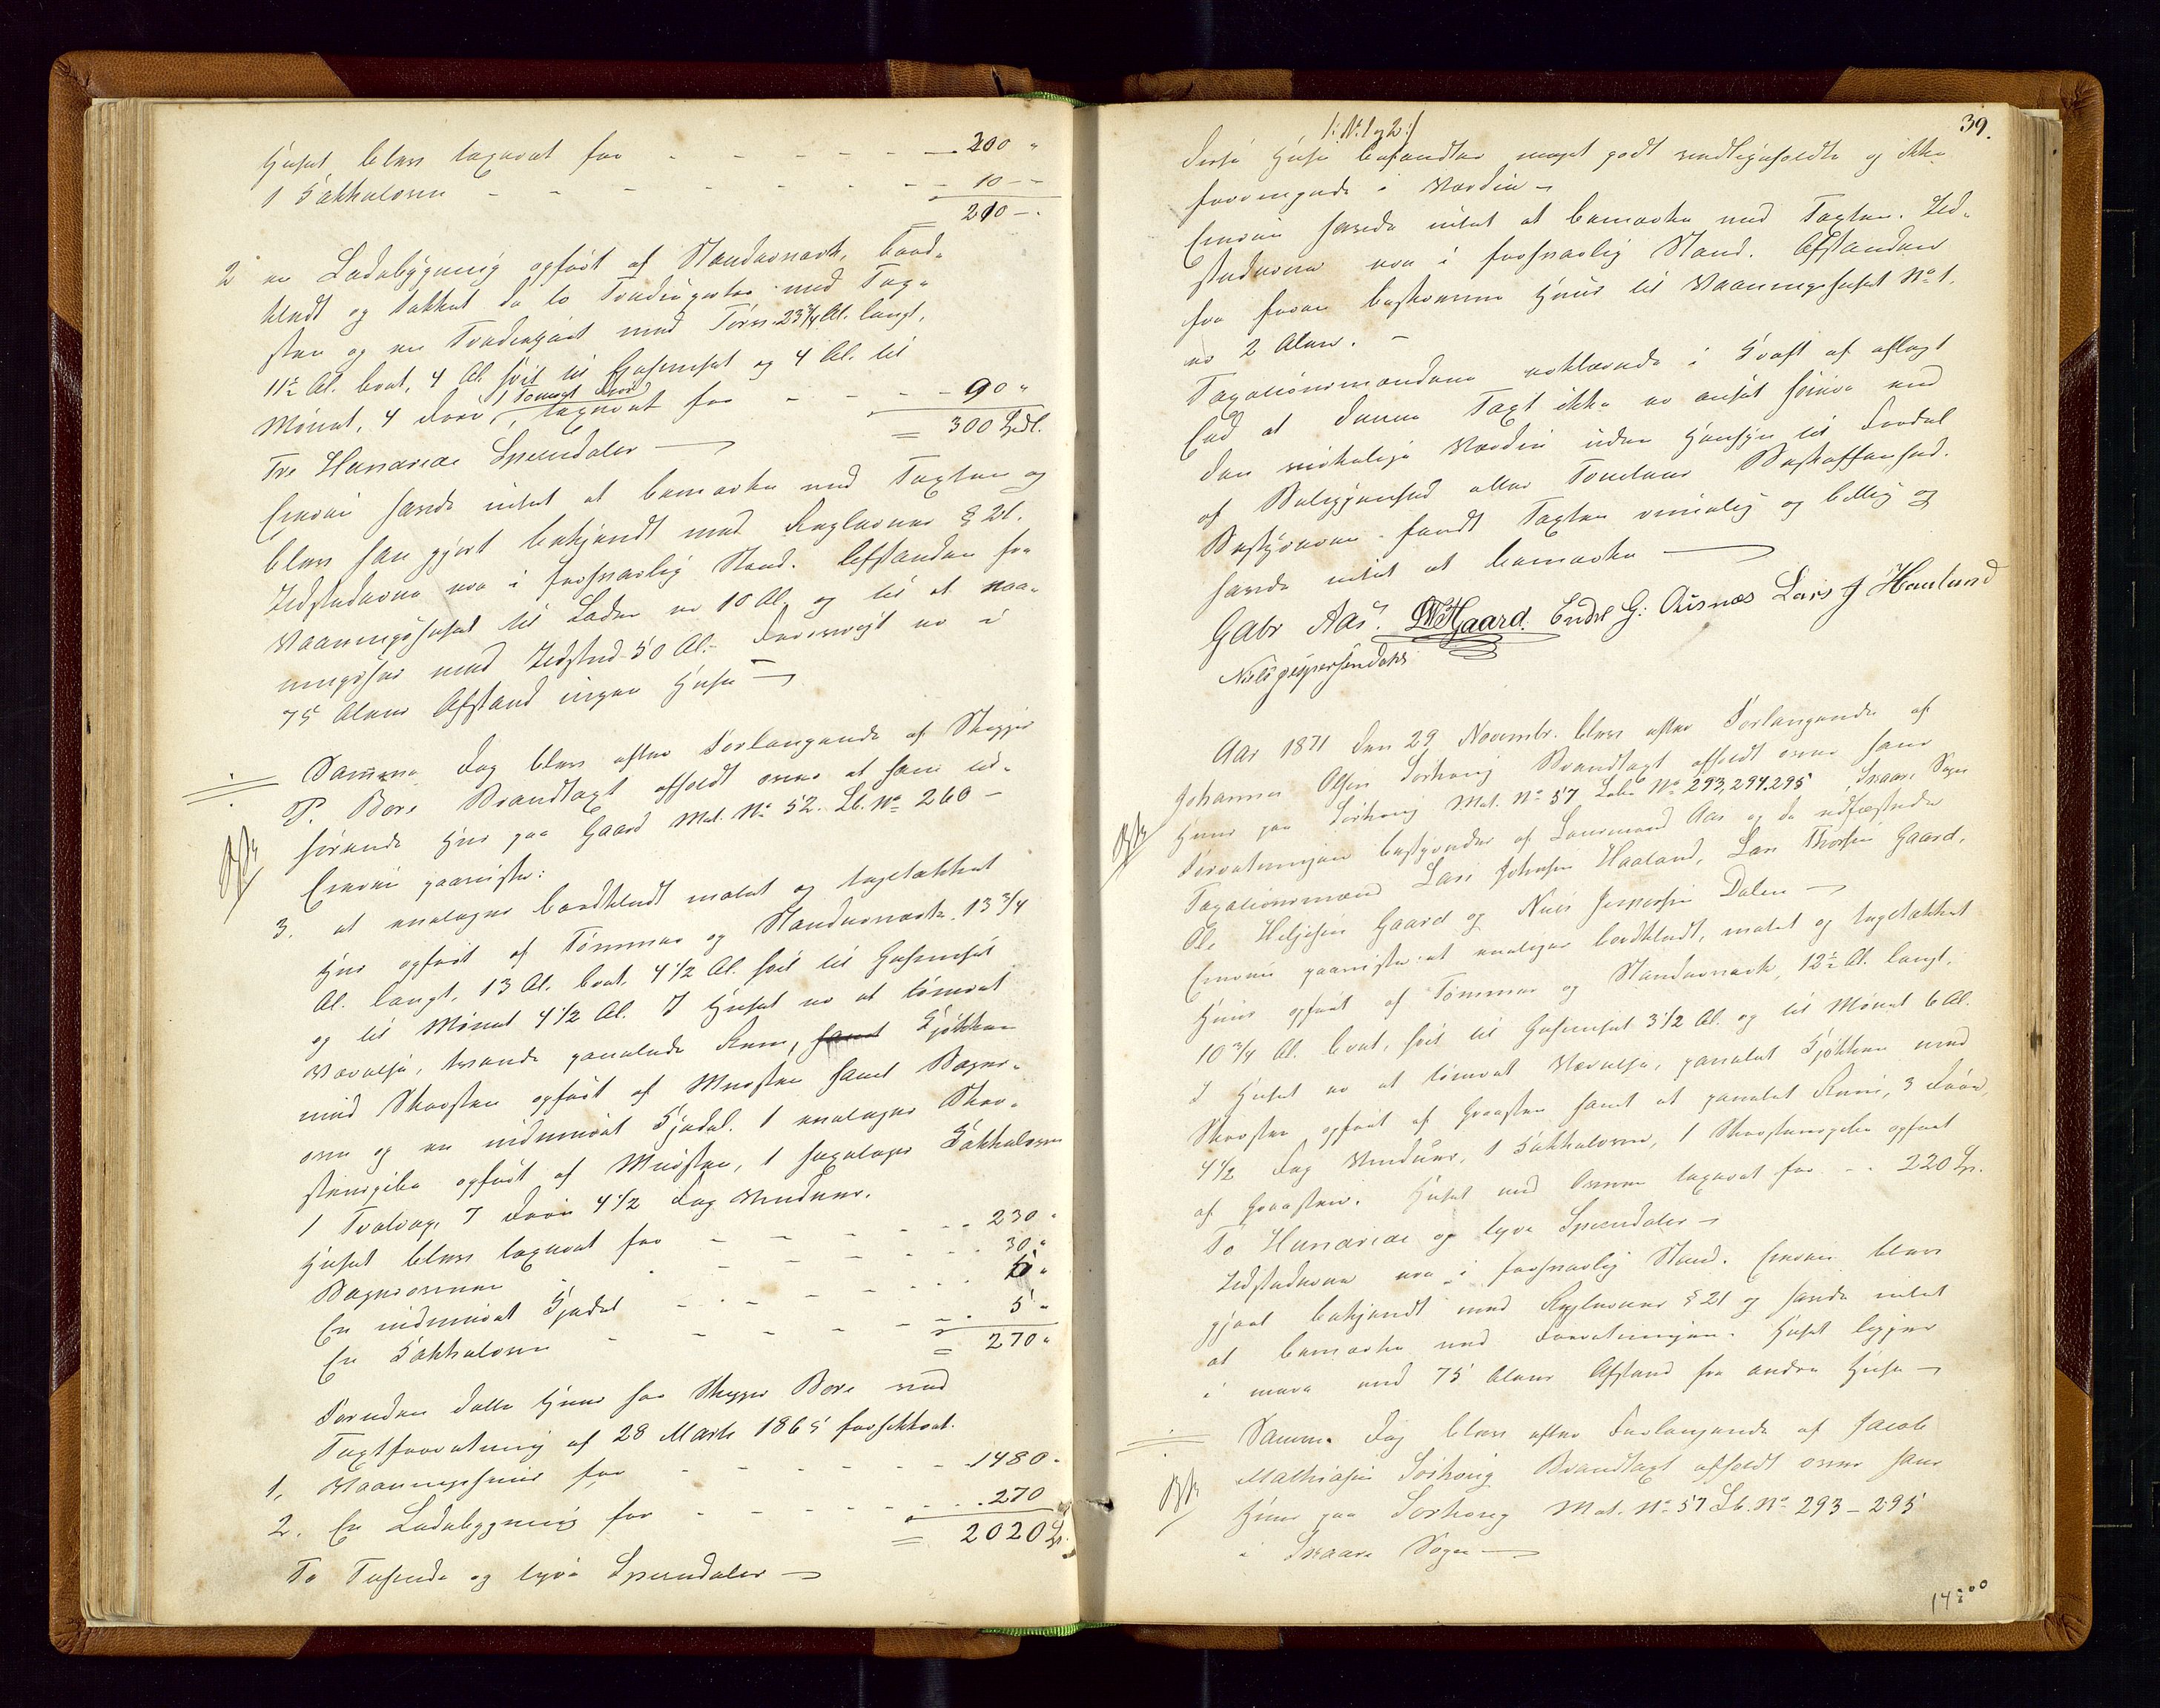 Huset blev taxeret for - - - - - - 200 "
1 Kakkelovn - - - - - - - - 10 - -
= 210 - -
2 en Ladebygning opført af Stænderværk, bord-
klædt og tækket da to Trediegarter med Tag-
sten og en Trediepart med Törv. 23 3/4 Al. langt,
11 1/2 Al. bret, 4 Al. höit til Gesimset og 4 Al. til
Mönnet, 4 Döre, 1 tömret taxeret for - - - - 90 "
= 300 Spdl.
Tre Hundrede Speciedaler —
Eieren havde intet at bemærke ved Taxten og
blev han gjort bekjendt med Reglernes § 21.
Ildstederne var i forsvarlig Stand. Afstanden fra
Vaaningshuset til Laden er 10 Al. og til et Vaa-
ningshus med Ildsted 50 Al. - Forøvrigt er i
75 Alens Afstand ingen Huse —
Samme Dag blev efter Forlangende af Skegge
P. Bore Brandtaxt afholdt over et ham til-
hörende Hus paa Gaard Mat. No 52. Lb. No 260 -
Eieren paaviste:
3. et enetages bordklædt malet og tagtækket
Hus opført af Tömmer og Stænderværk. 13 3/4
Al. langt, 13 Al. bret, 4 1/2 Al. höit til Gesimset
og til Mönnet 4 1/2 Al. I Huset er et tömret
Værelse, tvende panelede Rum, samt Kjökken
med Skorsten opført af Mursten samt Bager-
ovn og en indmuret Kjedel. 1 enetages Skor-
stenspibe opført af Mursten, 1 Kakkelovn
1 Trætrap, 7 Döre 4 1/2 Fag Vinduer.
Huset blev taxeret for - - - - - 230 "
Bagerovnen - - - - - 30 "
En indmuret Kjedel - - - - - 5 "
En Kakkelovn - - - - - 5 "
= 270 "
Foruden dette Huus har Skegge Bore ved
Taxtforretning af 28 Marts 1865 forsikkret.
1, Vaaningshuus for - - - - - 1480 -
2. En Ladebygning for - - - - - 270
= 2020 Sp.
To Tusinde og tyve Speciedaler —
39.
/: No 1 og 2 :/
Disse Huse befandtes meget godt vedligeholdte og ikke
forringede i Værdie -
Eieren havde intet at bemærke ved Taxten. Ild-
stederne var i forsvarlig Stand. Afstanden
fra foran beskrevne Huus til Vaaningshuset No 1.
er 2 Alen. -
Taxationsmændene erklærede i Kraft af aflagt
Eed at denne Taxt ikke er ansat höiere end
den virkelige Værdie uden Hensyn til Fordel
af Beliggenhed eller Tomtens Beskaffenhed.
Bestyreren fandt Taxten rimelig og billig og
havde intet at bemærke —
Gabr Aas. Gaard. Endre G: Aisnæs Lars J Haaland
Niels Jespersendahl
Aar 1871 den 29 Novembr. blev efter Forlangende af
Johannes Olsen Sörhoug Brandtaxt afholdt over hans
Huus paa Sörhoug Mat. No 57 Löbe No 293, 294, 295 Skaare Sogn
Forretningen bestyredes af Lensmand Aas og de edfæstede
Taxationsmænd Lars Johnsen Haaland, Lars Thorsen Gaard,
Ole Heljesen Gaard og Niels Jespersen Dalen —
Eieren paaviste: et enetages bordklædt, malet og tagtækket
Huus opført af Tömmer og Stænderværk, 12 1/2 Al. langt,
10 3/4 Al. bret, höit til Gesimset 3 1/2 Al. og til Mönnet 6 Al.
I Huset er et tömret Værelse, panelet Kjökken med
Skorsten opført af Graasten samt et panelet Rum, 3 Döre,
4 1/2 Fag Vinduer, 1 Kakkelovn, 1 Skorstenspibe opført
af Graasten. Huset med Ovnen taxeret for - - 220 Sp.
To Hundrede og tyve Speciedaler —
Ildstederne var i forsvarlig Stand. Eieren blev
gjort bekjendt med Reglernes § 21 og havde intet
at bemærke ved Forretningen. Huset ligger
i mere end 75 Alens Afstand fra andre Huse —
Samme Dag blev efter Forlangende af Jacob
Mathiasen Sörhoug Brandtaxt afholdt over hans
Huus paa Sörhoug Mat. No 57 Lb. No 293 - 295
i Skaare Sogn —